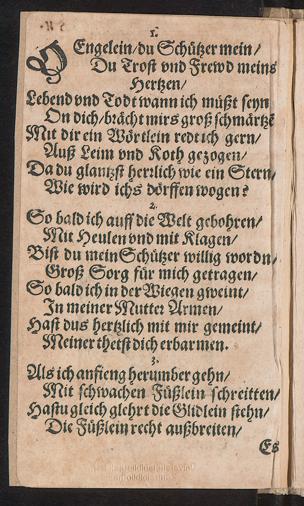 1.
O Engelein/du Schützer mein/
Du Trost vnd Frewd meins
Hertzen/
Lebend vnd Todt wann ich müßt seyn
On dich/brächt mirs groß schmärtzē
Mit dir ein Wörtlein redt ich gern/
Auß Leim vnd Koth gezogen/
Da du glantzst herrlich wie ein Stern/
Wie wird ichs dörffen wogen?
2.
So bald ich auff die Welt gebohren/
Mit Heulen vnd mit Klagen/
Bist du mein Schützer willig wordn/
Groß Sorg für mich getragen/
So bald ich in der Wiegen gweint/
In meiner Mutter Armen/
Hast dus hertzlich mit mir gemeint/
Meiner thetst dich erbarmen.
3.
Als ich anfieng herumber gehn/
Mit schwachen Füßlein schreitten/
Hastu gleich glehrt die Glidlein stehn/
Die Füßlein recht außbreiten/
Es